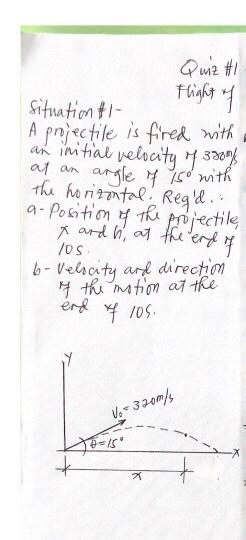 Quiz #1
Flight of
Situation #1-
A projectile is fired with
an initial velocity of 320m/s
at an angle of 15° with
the horizontal. Req'd.:
a- Position of the projectile,
x and h, at the end of
10s.
b- Velocity and direction
of the motion at the
end of 10s.
Y
V₀=320m/s
θ=15°
X
x